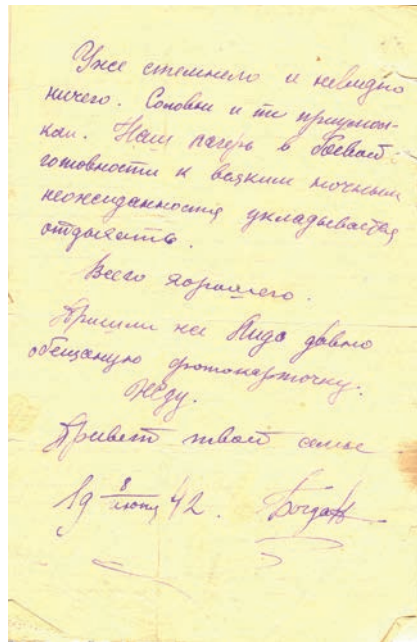 Уже стемнело и невидно
ничего. Соловьи и те приумол-
кли. Наш лагерь в боевой
готовности к всяким ночным
неожиданностям укладывается
отдыхать.
Всего хорошего.
Пришли же Лида давно
обещаную фотокарточку.
Жду.
Привет твоей семье
19 8/июня 42. Богдан